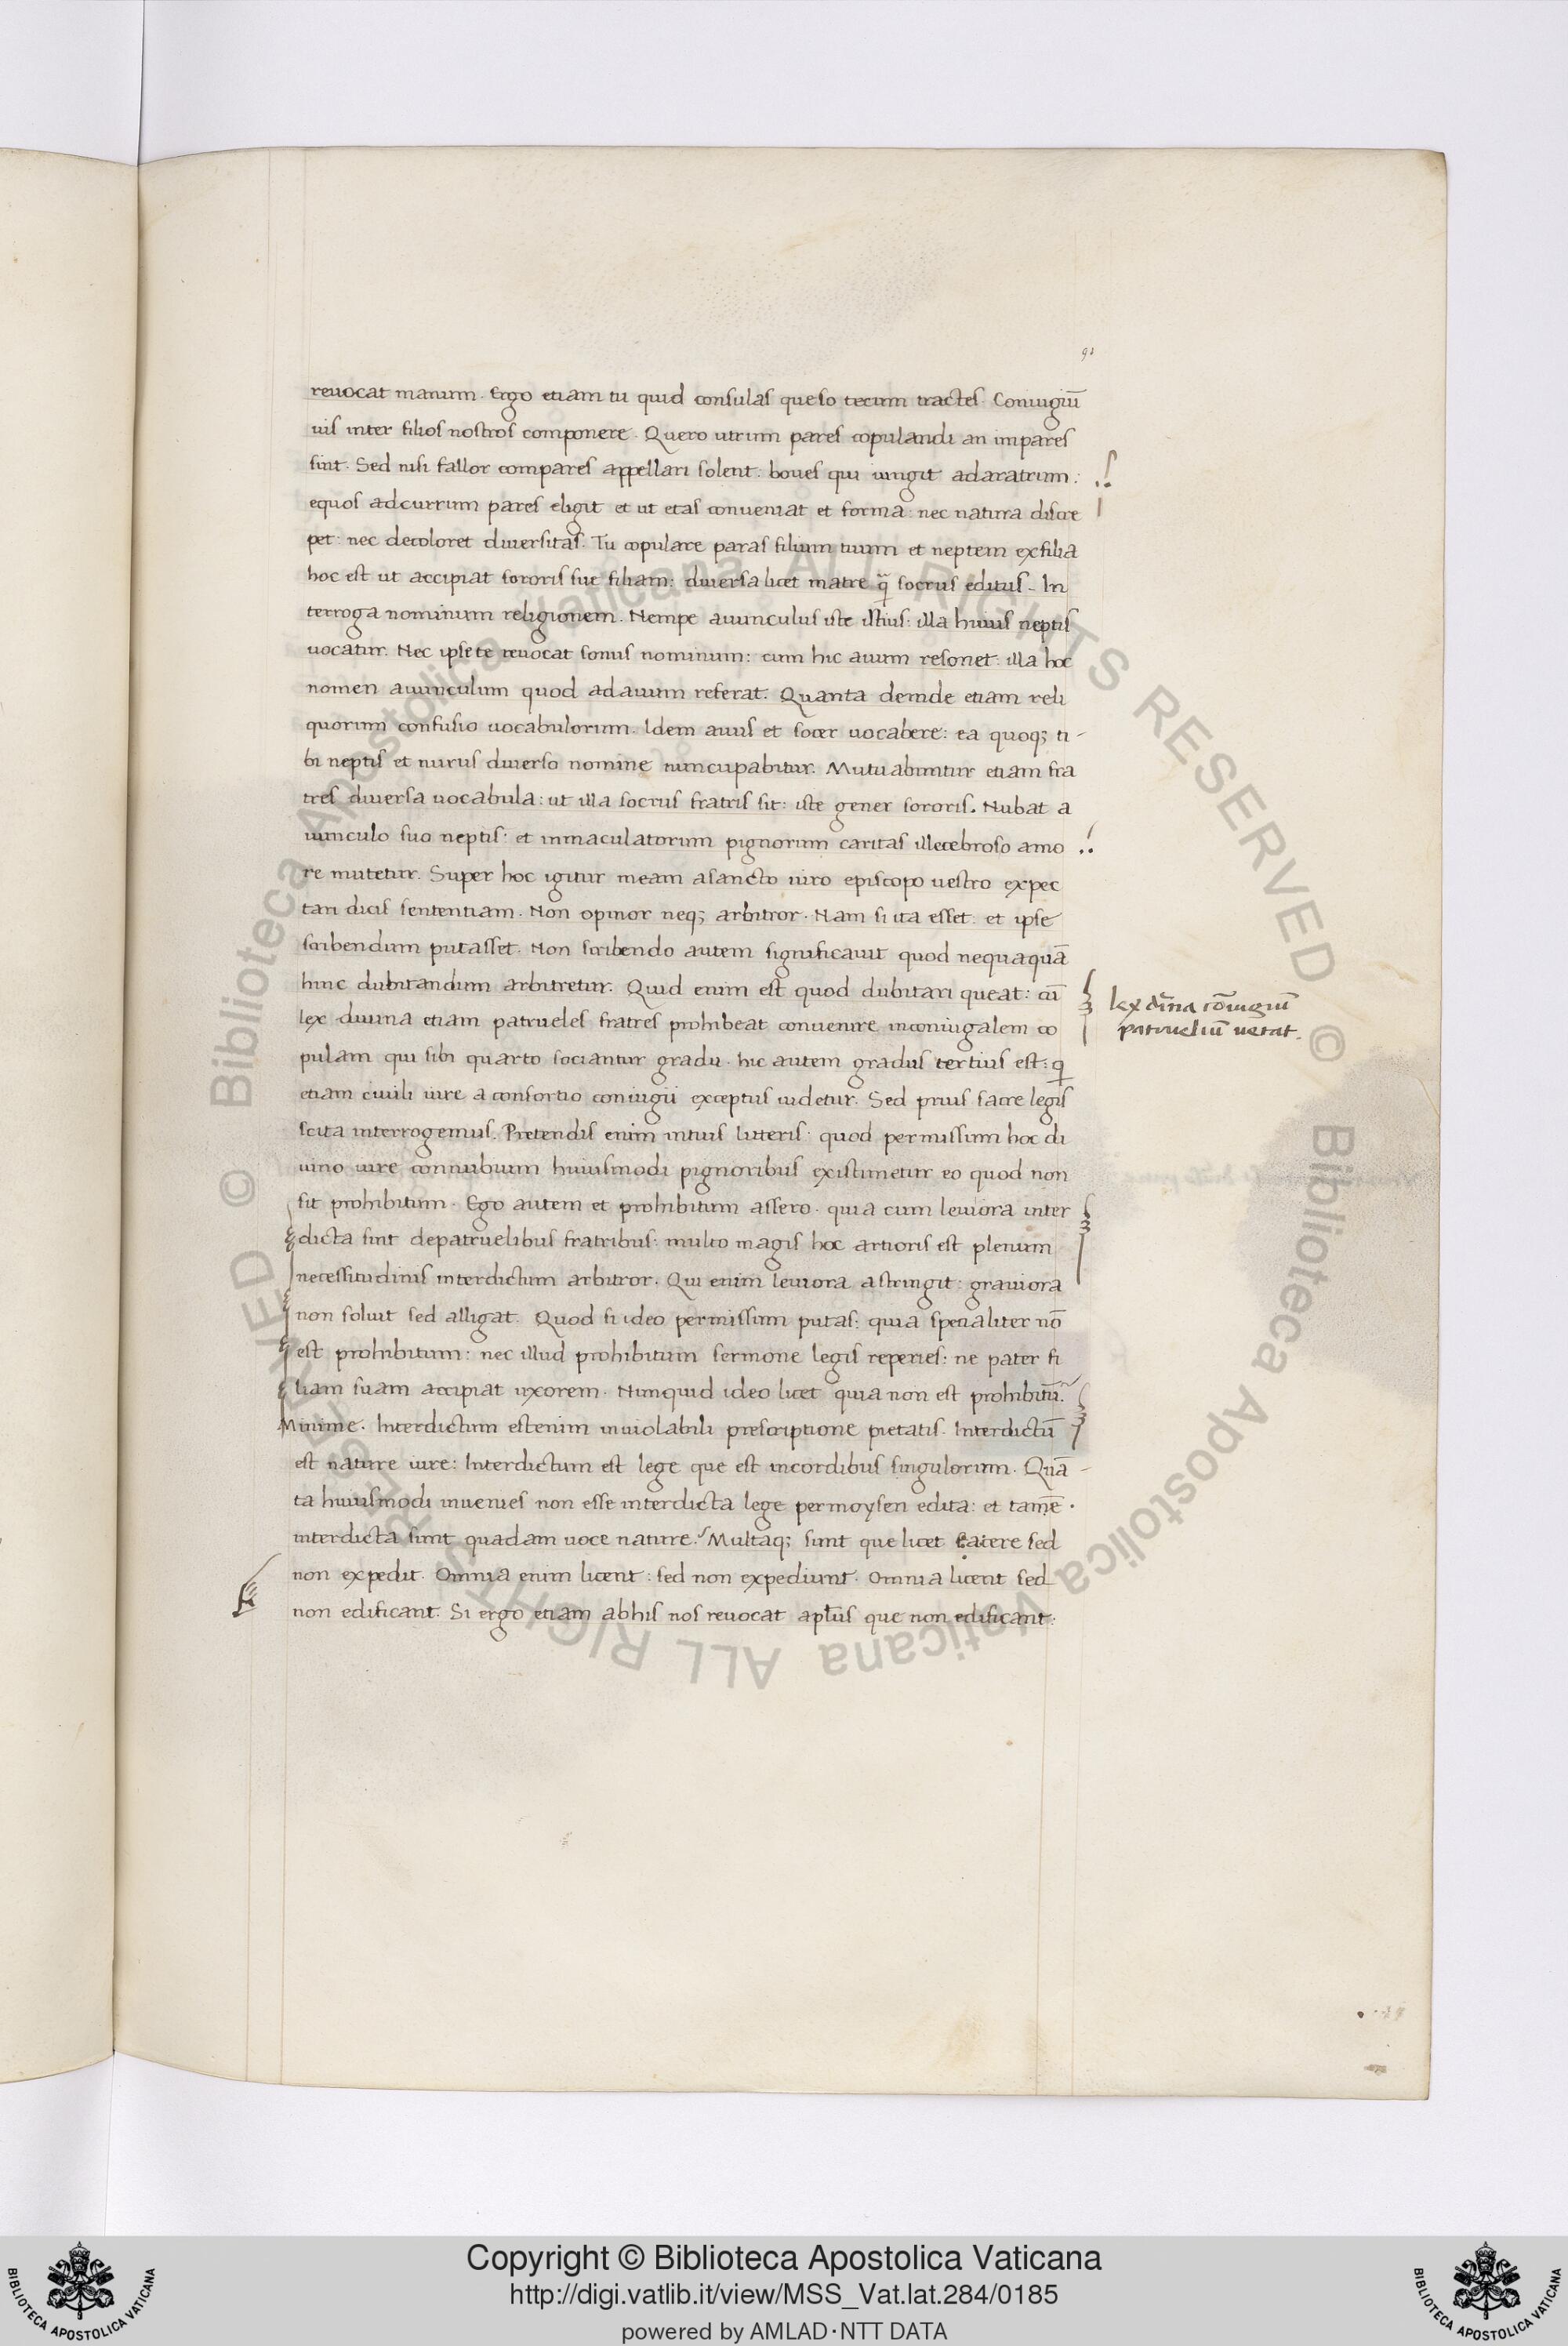 91
reuocat manum. Ergo etiam tu quid consulas queso tecum tractes. Coniugiū
uis inter filios nostros componere. Quero utrum pares copulandi an impares
sint. Sed nisi fallor compares appellari solent: boues qui iungit adaratrum:
equos adcurrum pares eligit et ut etas conueniat et forma: nec natura discre
pet: nec decoloret diuersitas. Tu copulare paras filium tuum et neptem exfilia
hoc est ut accipiat sororis sue filiam: diuersa licet matre q̄ socrus editus. In
terroga nominum religionem. Nempe auunculus iste istius: illa huius neptis
uocatur. Nec ipse te reuocat sonus nominum: cum hic auum resonet: illa hoc
nomen auunculum quod adauum referat. Quanta deinde etiam reli
quorum confusio uocabulorum. Idem auus et socer uocabere: ea quoq; ti-
bi neptis et nurus diuerso nomine nuncupabitur. Mutuabuntur etiam fra
tres diuersa uocabula: ut illa socrus fratris sit: iste gener sororis. Nubat a
uunculo suo neptis: et inmaculatorum pignorum caritas illecebroso amo
re mutetur. Super hoc igitur meam asancto uiro episcopo uestro expec
tari dicis sententiam. Non opinor neq; arbitror. Nam si ita esset: et ipse
scribendum putasset. Non scribendo autem significauit quod nequaquā
hinc dubitandum arbitretur. Quid enim est quod dubitari queat: cū
lex diuina etiam patrueles fratres prohibeat conuenire inconiugalem co
pulam qui sibi quarto sociantur gradu. hic autem gradus tertius est: q
etiam ciuili iure a consortio coniugii exceptus uidetur. Sed prius sacre legis
scita interrogemus. Pretendis enim intuis litteris: quod permissum hoc di
uino iure connubium huiusmodi pignoribus existimetur eo quod non
sit prohibitum. Ego autem et prohibitum assero. quia cum leuiora inter
dicta sint depatruelibus fratribus: multo magis hoc artioris est plenum
necessitudinis interdictum arbitror. Qui enim leuiora astringit: grauiora
non soluit sed alligat. Quod si ideo permissum putas: quia specialiter nō
est prohibitum: nec illud prohibitum sermone legis reperies: ne pater fi
liam suam accipiat uxorem. Nunquid ideo licet quia non est prohibitū.
Minime. Interdictum estenim inuiolabili prescriptione pietatis. Interdictū
est nature iure: Interdictum est lege que est incordibus singulorum. Quā-
ta huiusmodi inuenies non esse interdicta lege permoysen edita: et tamē.
interdicta sunt quadam uoce nature. Multaq; sunt que licet facere sed
non expedit. Omnia enim licent: sed non expediunt. Omnia licent sed
non edificant. Si ergo etiam abhis nos reuocat apl̄us que non edificant:
lex diīna cōiugiū
patrueliū uetat.
Copyright © Biblioteca Apostolica Vaticana
http://digi.vatlib.it/view/MSS_Vat.lat.284/0185
powered by AMLAD·NTT DATA
BIBLIOTECA APOSTOLICA VATICANA
BIBLIOTECA APOSTOLICA VATICANA
© Biblioteca Apostolica Vaticana ALL RIGHTS RESERVED © Biblioteca Apostolica Vaticana ALL RIGHTS RESERVED